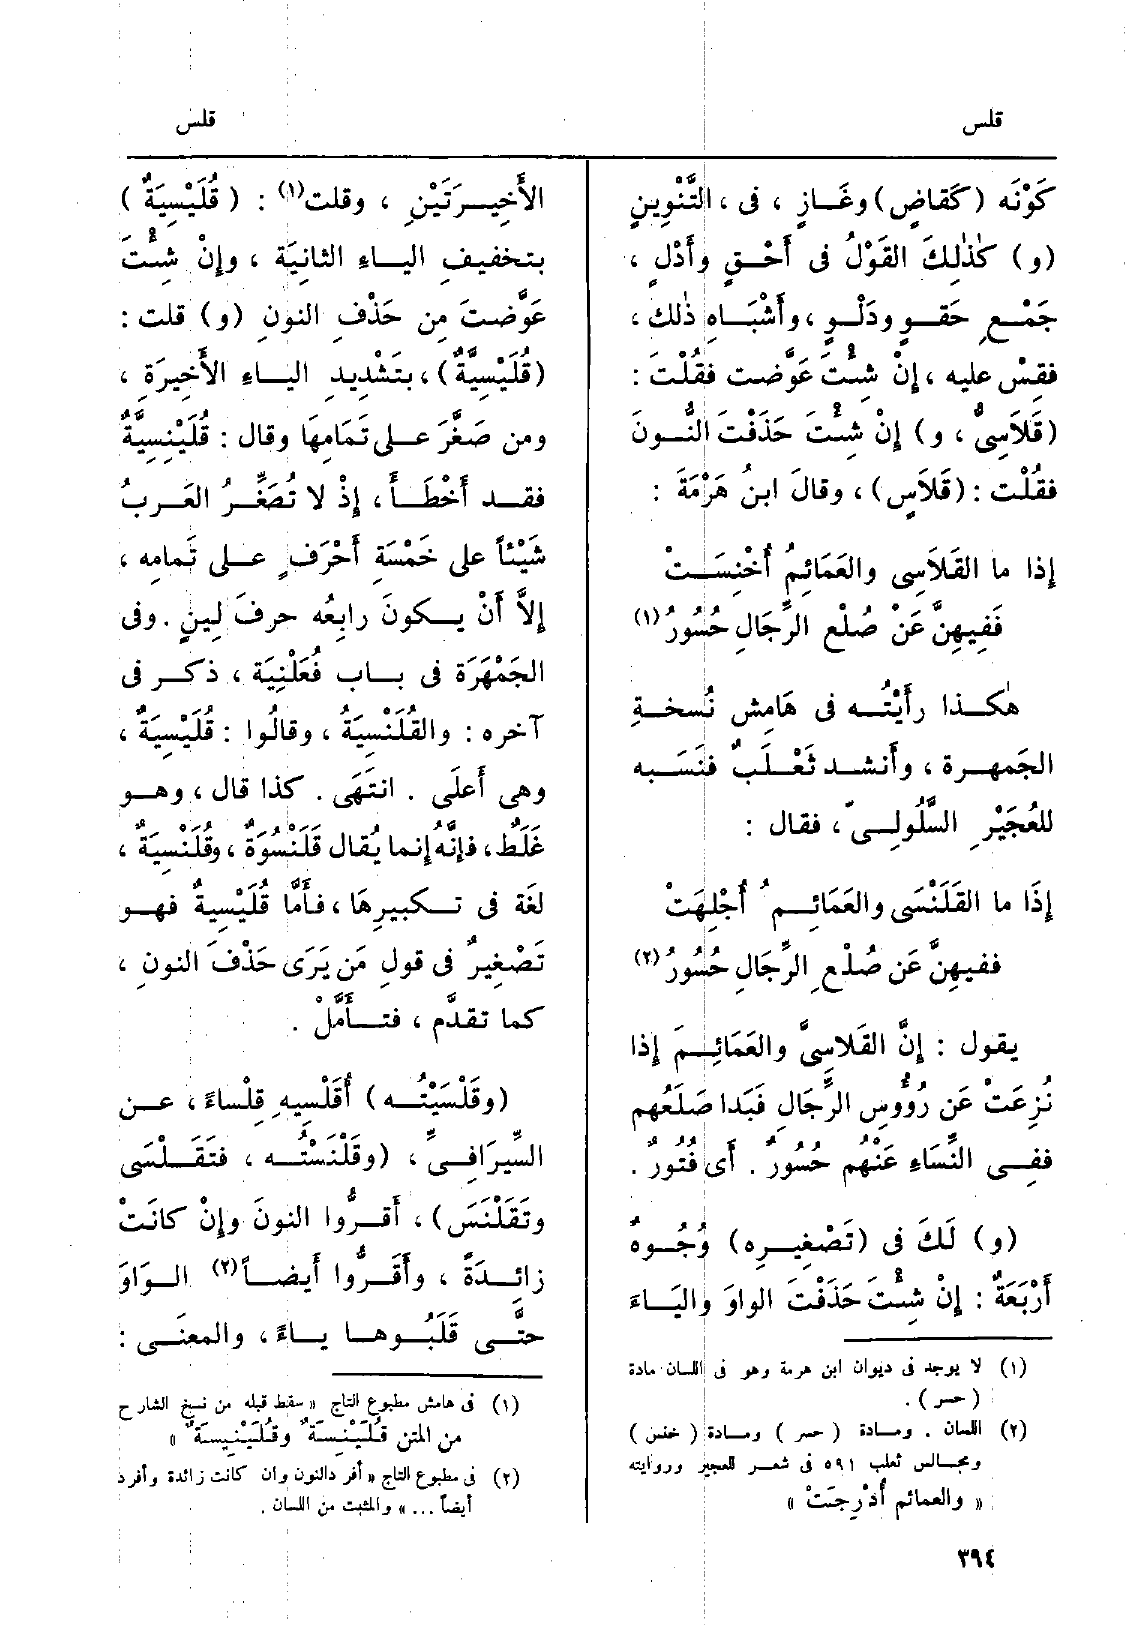 قلس
قلس
كَوْنَه (كَقَاضٍ) وغَازٍ ، فى ، التَّنْوِينِ
(و) كَذٰلِكَ القَوْلُ فى أَحْقٍ وأَدْلٍ ،
جَمْعِ حَقْوٍ ودَلْوٍ ، وأَشْبَاهِ ذٰلك ،
فقِسْ عليه ، إِنْ شِئْتَ عَوَّضت فقُلْتَ :
(قَلَاسِىُّ ، و) إِنْ شِئْتَ حَذَفْتَ النُّونَ
فقُلْت : (قَلَاسٍ) ، وقالَ ابنُ هَرْمَةَ :
إِذا ما القَلَاسِى والعَمَائِمُ أُخْنِسَتْ
فَفِيهِنَّ عَنْ صُلْعِ الرِّجَالِ حُسُورُ (١)
هٰكذا رأَيْتُه فى هَامِش نُسخةِ
الجَمهرة ، وأَنشد ثَعْلَبٌ فنَسَبه
للعُجَيْرِ السَّلُولِىّ ، فقال :
إِذَا ما القَلَنْسَى والعَمَائِمُ أُجْلِهَتْ
ففيهِنَّ عَن صُلْعِ الرِّجَالِ حُسُورُ (٢)
يقول : إِنَّ القَلَاسِىَّ والعَمَائِمَ إِذا
نُزِعَتْ عَن رُؤُوسِ الرِّجَالِ فبَدا صَلَعُهم
ففى النِّسَاءِ عَنْهُم حُسُورٌ . أَى فُتُورٌ .
(و) لَكَ فى (تَصْغِيرِه) وُجُوهٌ
أَرْبَعَةٌ : إِنْ شِئْتَ حَذَفْتَ الواوَ واليَاءَ
(١) لا يوجد فى ديوان ابن هرمة وهو فى اللسان مادة
(حسر) .
(٢) اللسان . ومادة (حسر) ومادة (خنس)
ومجالس ثعلب ٥٩١ فى شعر للعجير وروايته
« والعمائم أُدْرِجَتْ »
الأَخِيرَتَيْنِ ، وقلت (١) : (قُلَيْسِيَةٌ)
بتخفيفِ الياءِ الثانِيَة ، وإِنْ شِئْتَ
عَوَّضتَ مِن حَذْفِ النونِ (و) قلت :
(قُلَيْسِيَّةٌ) ، بتَشْدِيدِ الياءِ الأَخِيرَةِ ،
ومن صَغَّرَ على تَمَامِها وقال : قُلَيْنِسِيَّةٌ
فقد أَخْطَأَ ، إِذْ لا تُصَغِّرُ العَرَبُ
شَيْئاً على خَمْسَةِ أَحْرَفٍ على تَمامِه ،
إِلاَّ أَنْ يكونَ رابِعُه حرفَ لِينٍ . وفى
الجَمْهَرَة فى باب فُعَلْنِيَة ، ذكر فى
آخره : والقُلَنْسِيَةُ ، وقالُوا : قُلَيْسِيَةٌ ،
وهى أَعلَى . انتَهَى . كذا قال ، وهو
غَلَطٌ ، فإِنَّه إِنما يُقال قَلَنْسُوَةٌ ، وقُلَنْسِيَةٌ ،
لغة فى تكبيرِهَا ، فأَمَّا قُلَيْسِيَةٌ فهو
تَصْغِيرٌ فى قولِ مَن يَرَى حَذْفَ النونِ ،
كما تقدَّم ، فتأَمَّلْ .
(وقَلْسَيْتُه) أُقَلْسِيهِ قِلْساءً ، عن
السِّيرَافىِّ ، (وقَلْنَسْتُه ، فتَقَلْسَى
وتَقَلْنَسَ) ، أَقرُّوا النونَ وإِنْ كانَتْ
زائدَةً ، وأَقَرُّوا أَيضاً (٢) الواوَ
حتَّى قَلَبُوها ياءً ، والمعنَى :
(١) فى هامش مطبوع التاج « سقط قبله من نسخ الشارح
من المتن قُلَيْنِسَةٌ وقُلَيْنِيسَةٌ »
(٢) فى مطبوع التاج « أفرد النون وان كانت زائدة وأفرد
أيضاً ... » والمثبت من اللسان .
٣٩٤